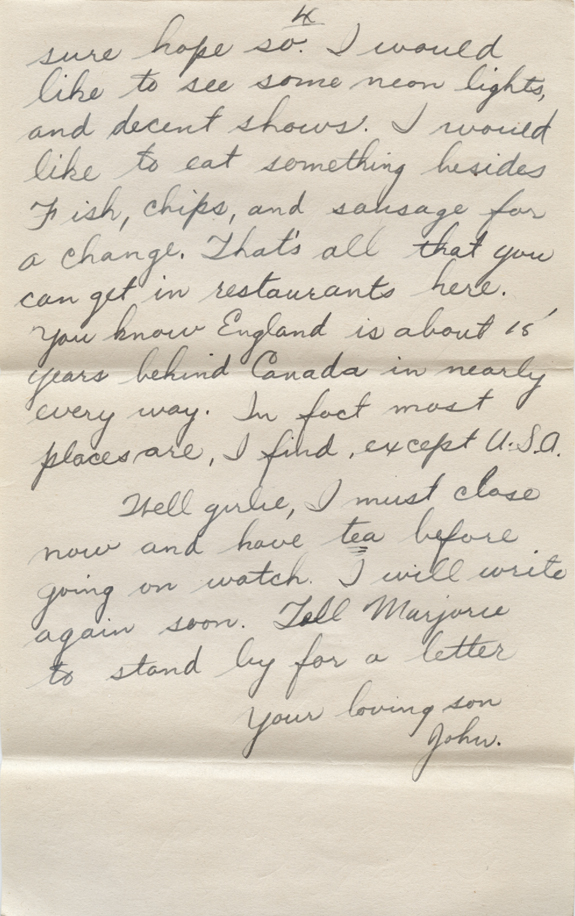 4
sure hope so. I would
like to see some neon lights,
and decent shows. I would
like to eat something besides
Fish, chips, and sausage for
a change. That's all that you
can get in restaurants here.
You know England is about 15
years behind Canada in nearly
every way. In fact most
places are, I find, except U.S.A.
Well girlie, I must close
now and have tea before
going on watch. I will write
again soon. Tell Marjorie
to stand by for a letter
Your loving son
John.